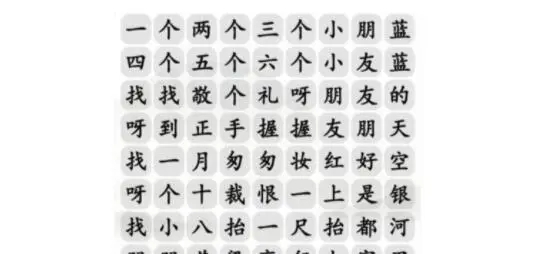 一个两个三个小朋蓝
四个五个六个小友蓝
找找敬个礼呀朋友的
呀到正手握握友朋天
找一月匆匆妆红好空
呀个十裁恨一上是银
找小八抬一尺抬都河